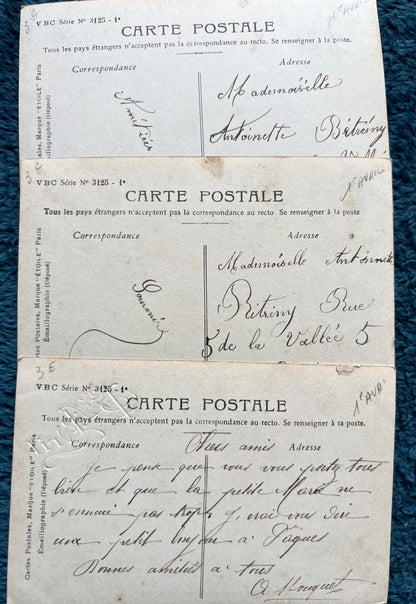 3 E
1er AVRIL
VBC Série No 3125 - 1e
CARTE POSTALE
Tous les pays étrangers n'acceptent pas la correspondance au recto. Se renseigner à la poste.
Correspondance
Adresse
Mademoiselle
Antoinette Bétrémy
Cartes Postales, Marque "ÉTOILE" Paris
Émaillographie (Déposé)
3 E
1er AVRIL
VBC Série No 3125 - 1e
CARTE POSTALE
Tous les pays étrangers n'acceptent pas la correspondance au recto. Se renseigner à la poste
Correspondance
Adresse
Mademoiselle Antoinette
Souvenir
Rue
5 de la Vallée 5
Cartes Postales, Marque "ÉTOILE" Paris
Émaillographie (Déposé)
3 E
1er AVRI
VBC Série No 3125 - 1e
CARTE POSTALE
Tous les pays étrangers n'acceptent pas la correspondance au recto. Se renseigner à la poste.
Correspondance
Adresse
amis
Je pense que vous vous portez tous
bien et que la petite ne
s'ennuie pas trop j'irai vous dire
un petit à Pâques
Bonnes amitiés à tous
Cartes Postales, Marque "ÉTOILE" Paris
Émaillographie (Déposé)